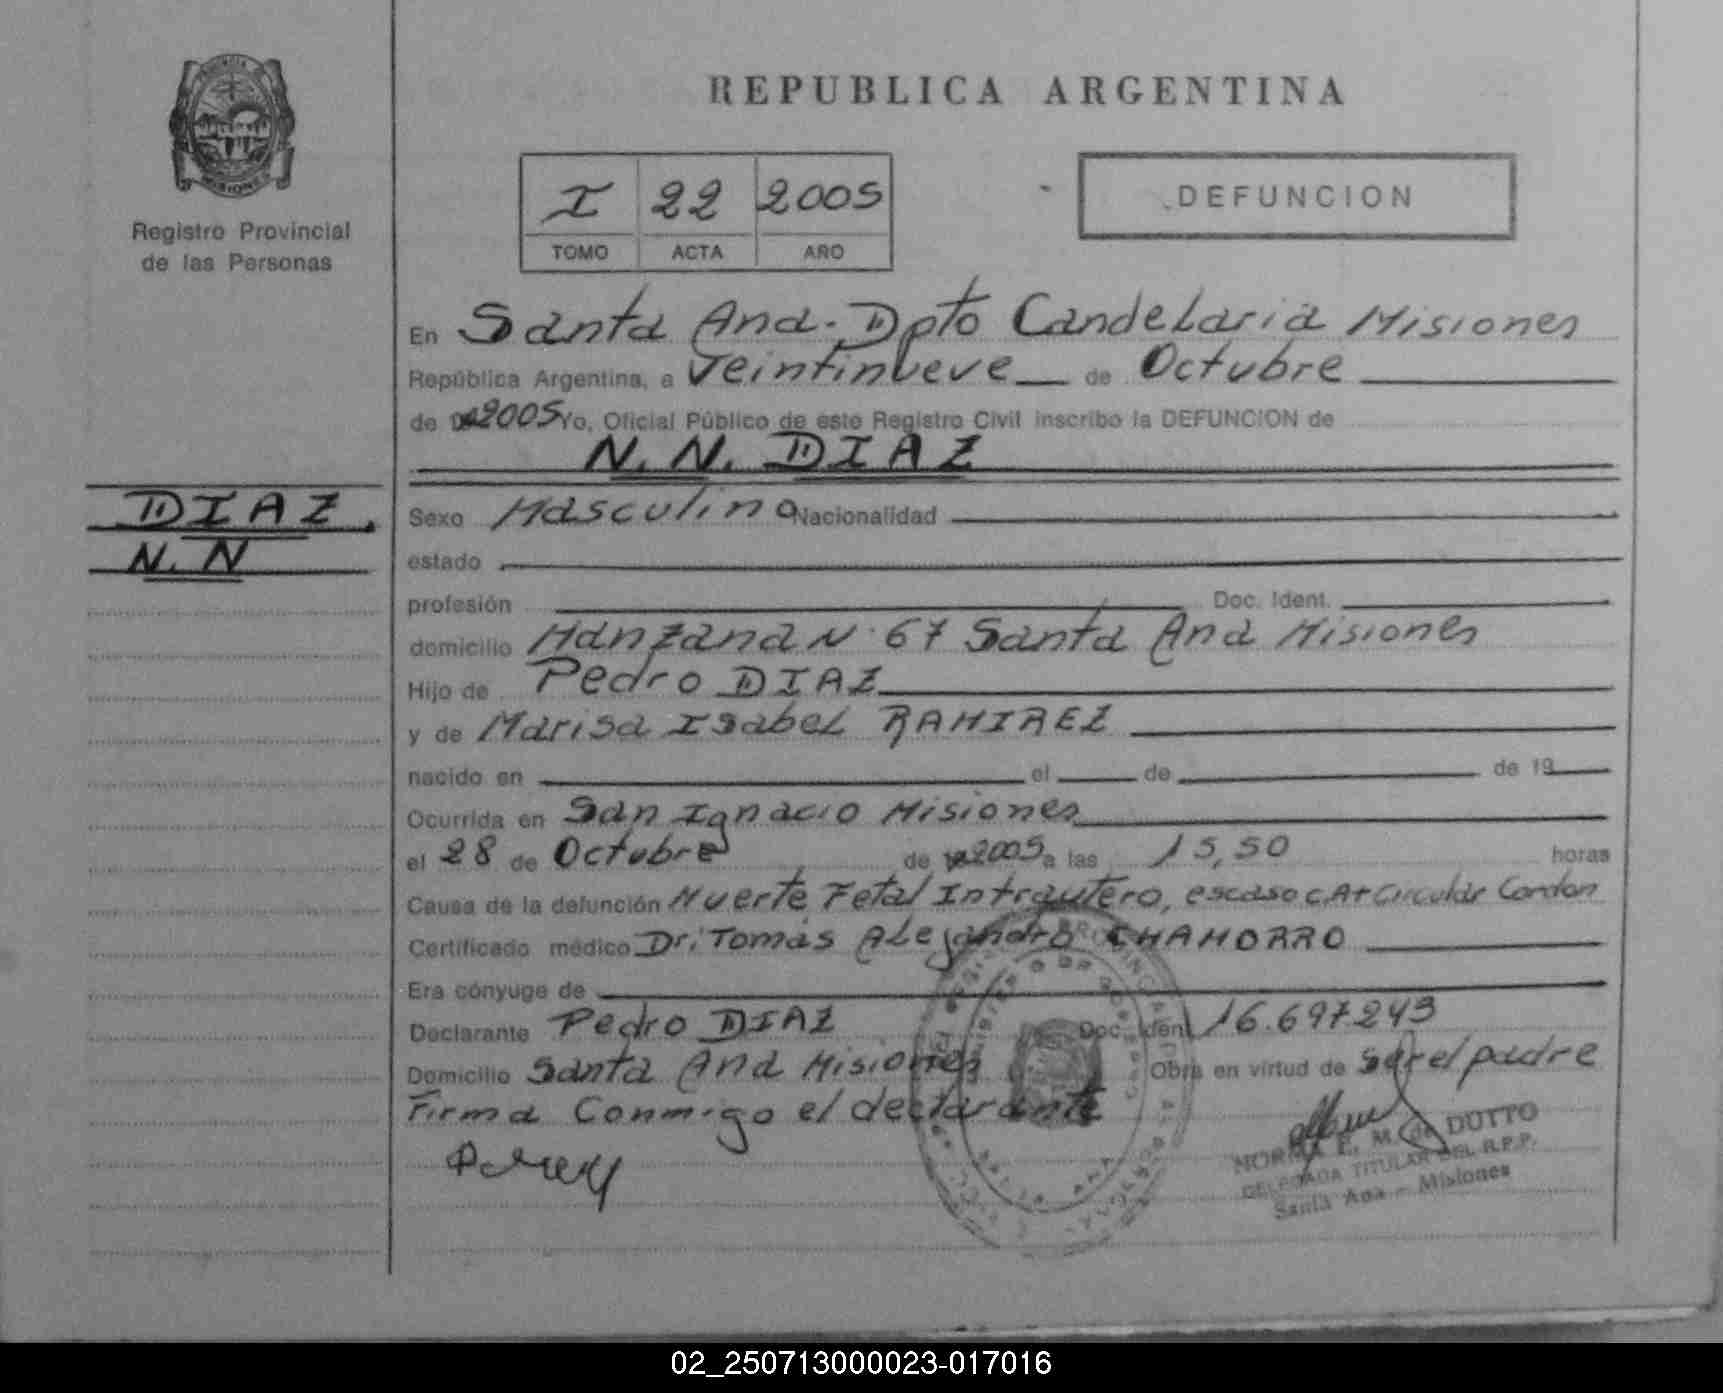 REPUBLICA ARGENTINA
PROVINCIA DE
MISIONES
Registro Provincial
de las Personas
I 22 2005
TOMO ACTA AÑO
DEFUNCION
En Santa Ana. Dpto Candelaria Misiones
República Argentina, a Veintinueve de Octubre
de 2005 Yo, Oficial Público de este Registro Civil inscribo la DEFUNCION de
N. N. DIAZ
DIAZ.
N. N
Sexo Masculino Nacionalidad
estado
profesión Doc. Ident.
domicilio Manzana N° 67 Santa Ana Misiones
Hijo de Pedro DIAZ
y de Marisa Isabel RAMIREZ
nacido en el de de 19
Ocurrida en San Ignacio Misiones
el 28 de Octubre de 2005 a las 15,50 horas
Causa de la defunción Muerte Fetal Intrautero, escaso C.A+ Circular Cordon
Certificado médico Dr: Tomás Alejandro CHAMORRO
Era cónyuge de
Declarante Pedro DIAZ Doc. Ident. 16.697243
Domicilio Santa Ana Misiones Obra en virtud de ser el padre
Firma Conmigo el declarante
NORMA E. M. de DUTTO
DELEGADA TITULAR DEL R.P.P.
Santa Ana - Misiones
02_250713000023-017016